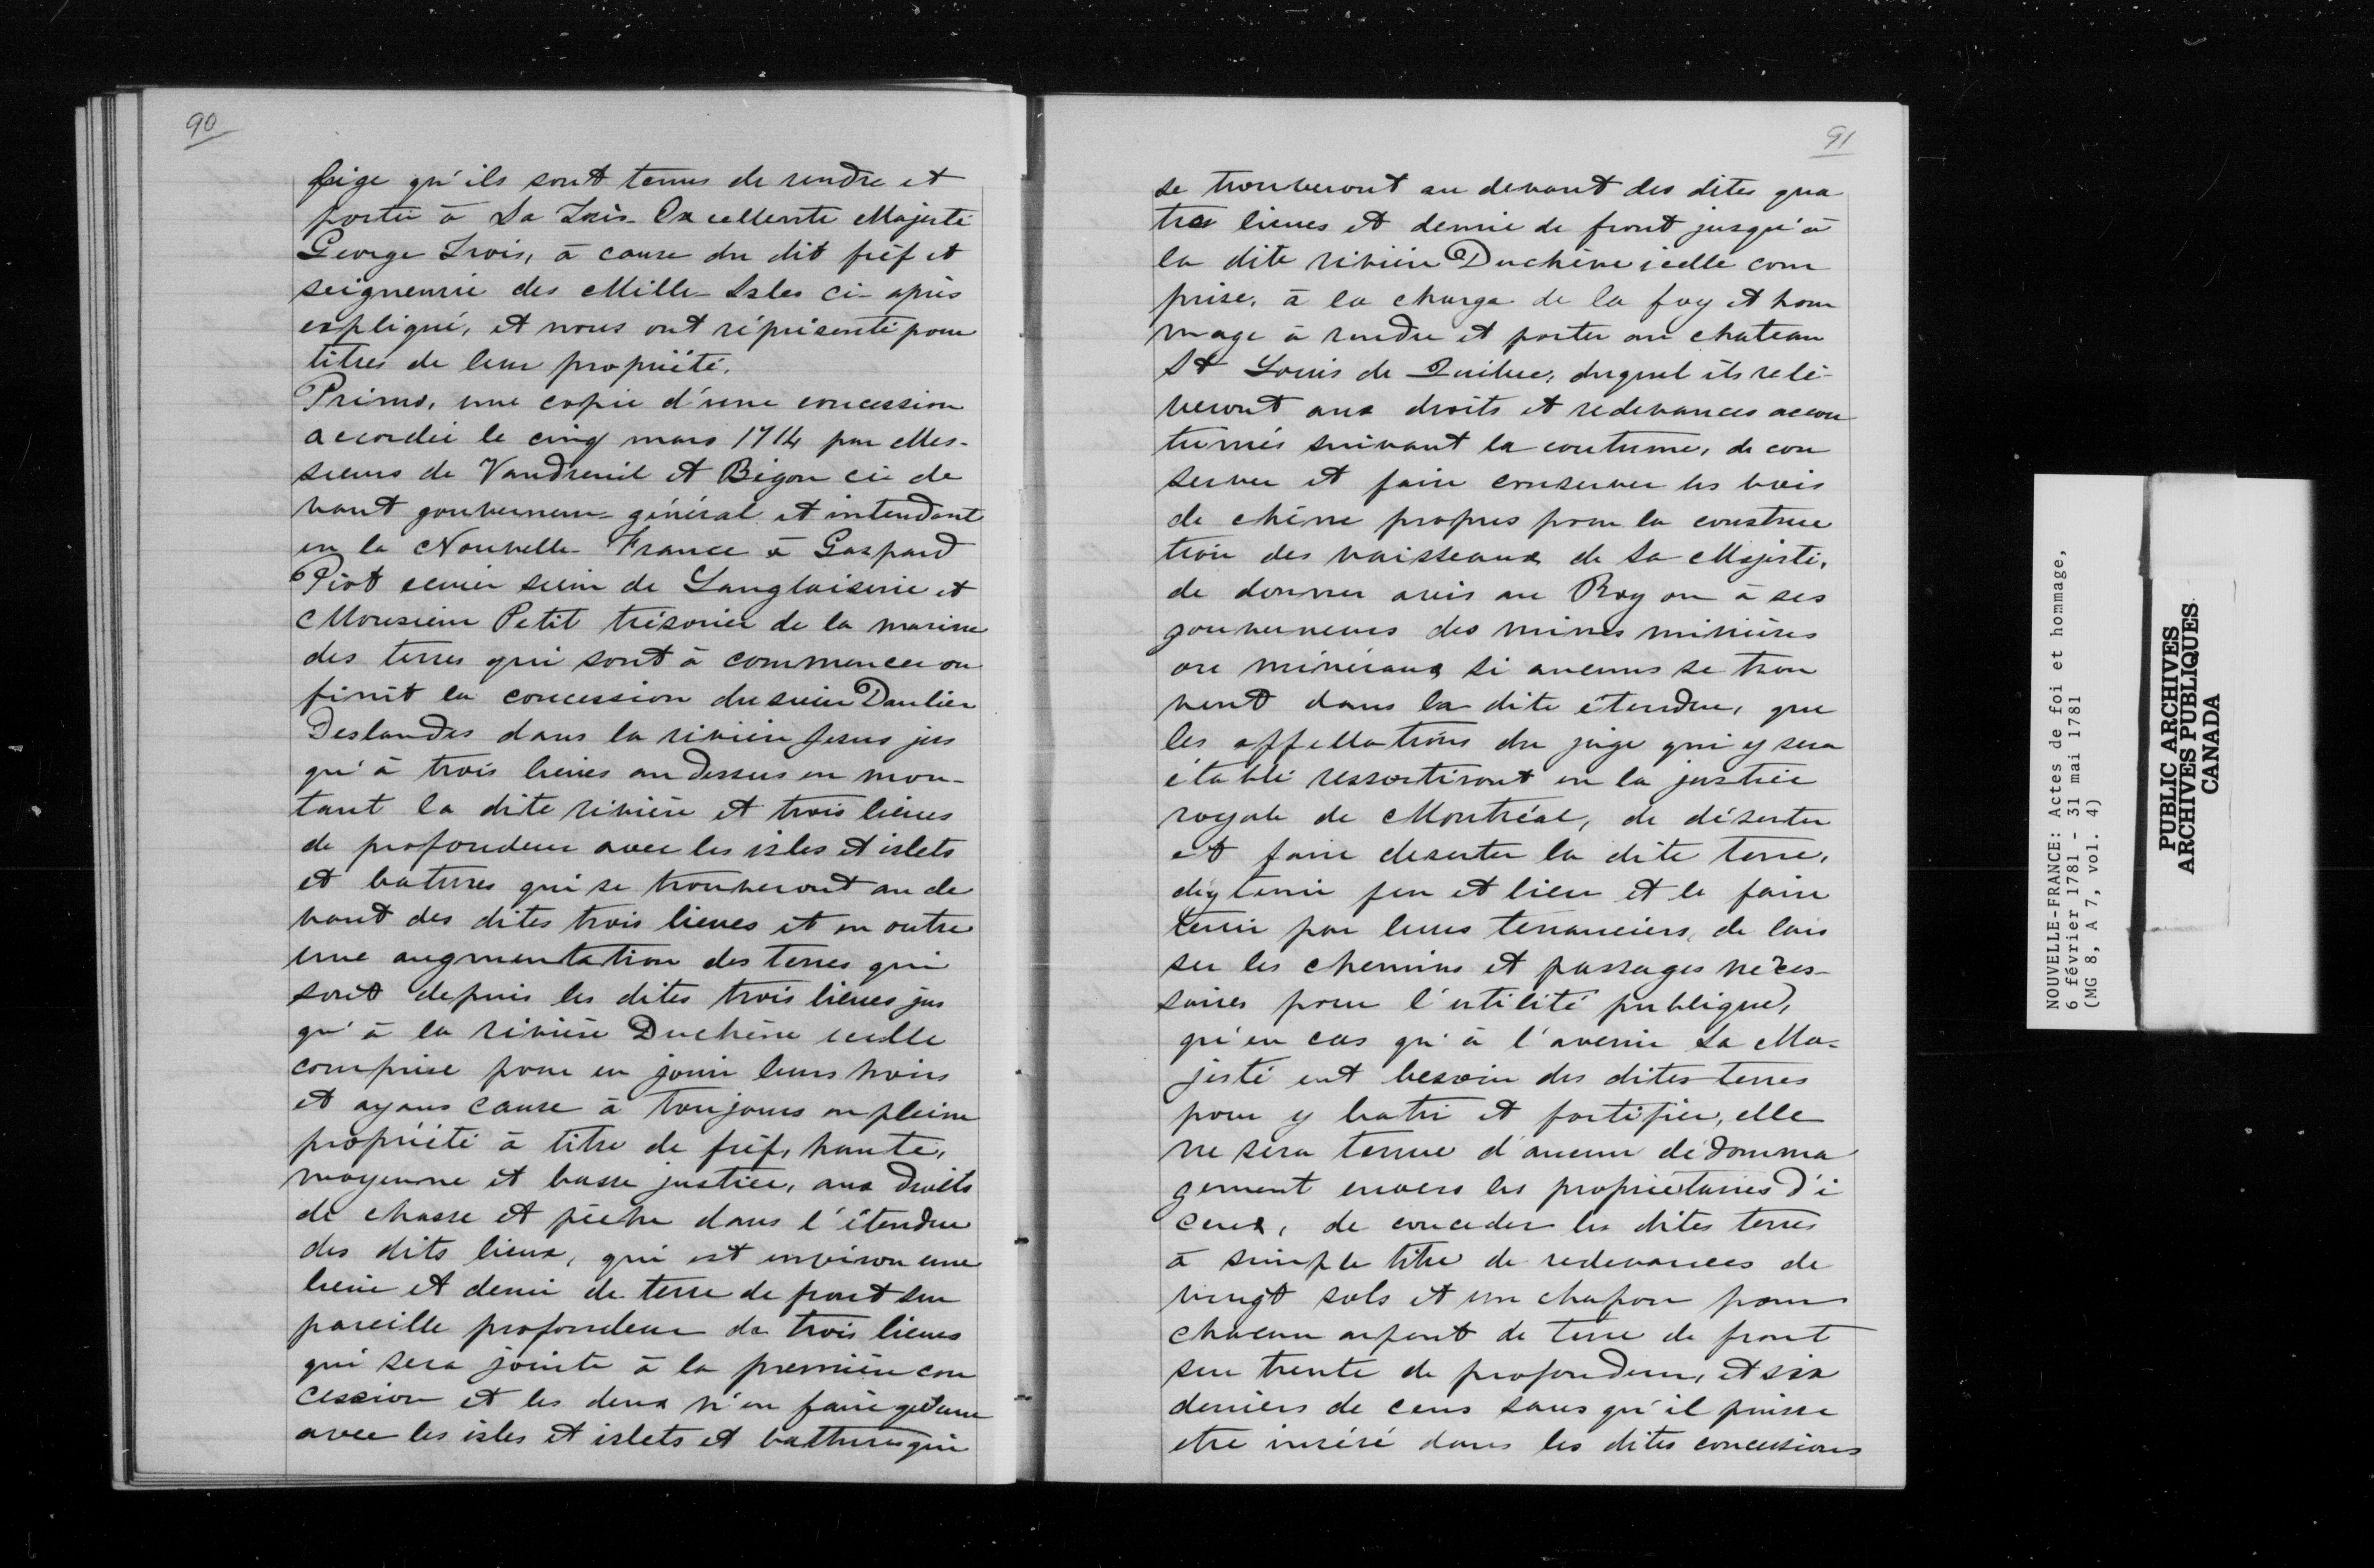 90
lige qu'ils sont tenus de rendre et
porter à Sa Très-Excellente Majesté
George Trois, à cause du dit fièf et
seigneurie des Mille-Isles ci-après
expliqué, et nous ont réprésenté pour
titres de leur propriété.
Primo, une copie d'une concession
accordée le cinq mars 1714 par Mes-
sieurs de Vaudreuil et Bégon ci de
vant gouverneur général et intendant
en la Nouvelle-France à Gaspard
Piot ecuier sieur de Langloiserie et
Monsieur Petit trésorier de la marine
des terres qui sont à commencer ou
finit la concession du sieur Daulier
Deslandes dans la rivière Jesus jus
qu'à trois lieues au dessus en mon-
tant la dite rivière et trois lieues
de profondeur avec les isles et islets
et batures qui se trouveront au de
vant des dites trois lieues et en outre
une augmentation des terres qui
sont depuis les dites trois lieues jus
qu'à la rivière Duchêne icelle
comprise pour en jouir leurs hoirs
et ayans cause à toujours en pleine
propriété à titre de fièf, haute,
moyenne et basse justice, aux droits
de chasse et pêche dans l'étendue
des dits lieux, qui est environ une
lieue et demie de terre de front sur
pareille profondeur de trois lieues
qui sera jointe à la première con
cession et les deux n'en faire qu'une
avec les isles et islets et battures qui
91
se trouveront au devant des dites qua
tre lieues et demie de front jusqu'à
la dite rivière Duchêne icelle com
prise, à la charge de la foy et hom
mage à rendre et porter au chateau
St Louis de Québec, duquel ils relè-
veront aux droits et redevances accou
tumés suivant la coutume, de con
server et faire conserver les bois
de chêne propres pour la construc
tion des vaisseaux de Sa Majesté,
de donner avis au Roy ou à ses
gouverneurs des mines minières
ou minéraux si aucuns se trou
vent dans la dite étendue, que
les appellations du juge qui y sera
établi ressortiront en la justice
royale de Montréal, de déserter
et faire deserter la dite terre,
d'y tenir feu et lieu et le faire
tenir par leurs tenanciers, de lais
ser les chemins et passages néces-
saires pour l'utilité publique,
qu'en cas qu'à l'avenir Sa Ma-
jesté eut besoin des dites terres
pour y batir et fortifier, elle
ne sera tenue d'aucun dédomma
gement envers les proprietaires d'i
ceux, de conceder les dites terres
à simple titre de redevances de
vingt sols et un chapon pour
chacun arpent de terre de front
sur trente de profondeur, et six
deniers de cens sans qu'il puisse
etre inséré dans les dites concessions
NOUVELLE-FRANCE: Actes de foi et hommage,
6 février 1781 - 31 mai 1781
(MG 8, A 7, vol. 4)
PUBLIC ARCHIVES
ARCHIVES PUBLIQUES
CANADA